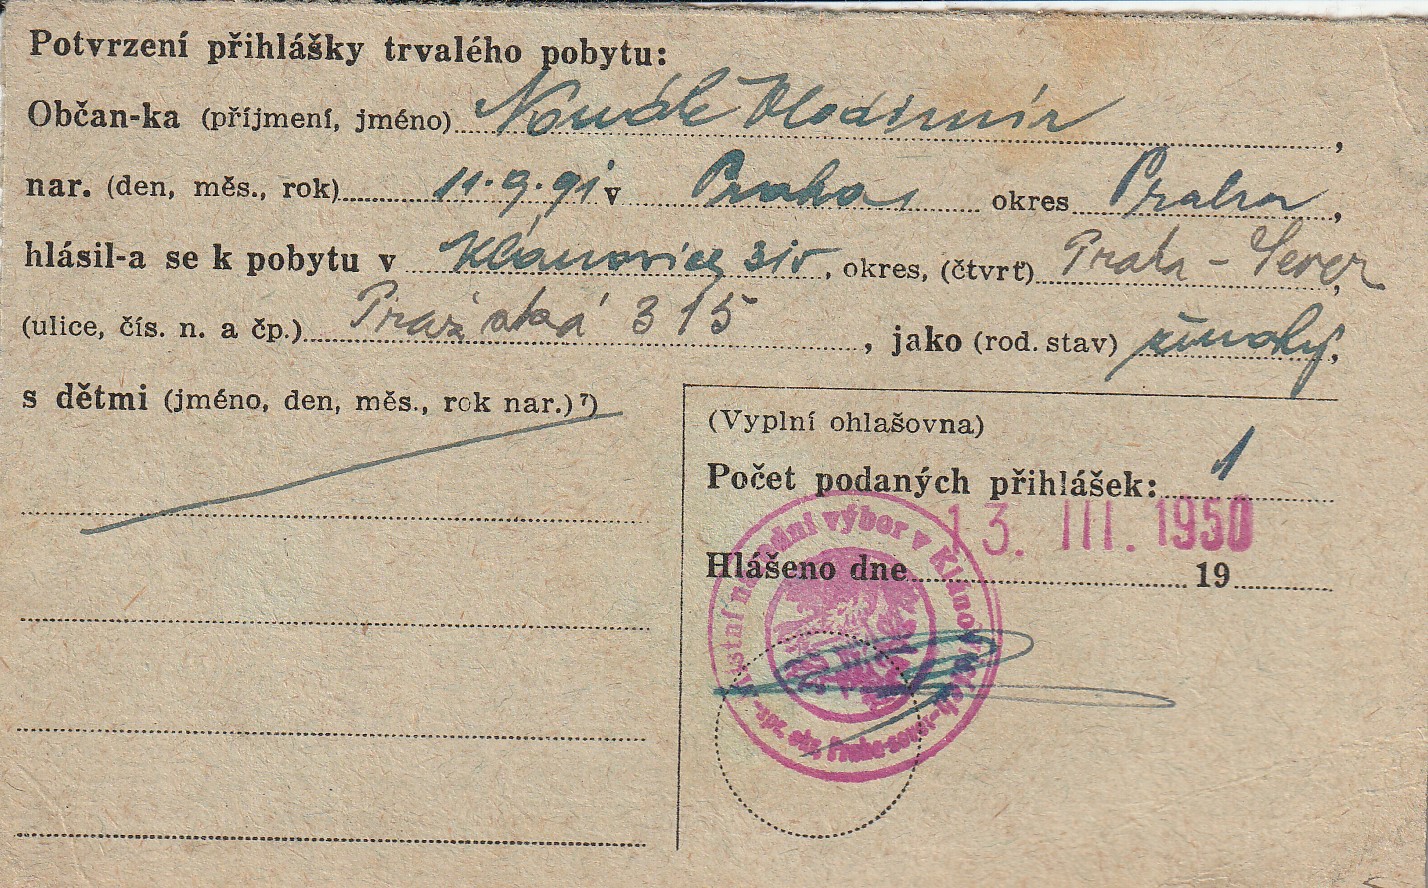 Potvrzení přihlášky trvalého pobytu:
Občan-ka (příjmení, jméno) Novák Vladimír,
nar. (den, měs., rok) 11.9.91 v Praha okres Praha,
hlásil-a se k pobytu v Klánovice 315, okres, (čtvrť) Praha-Sever,
(ulice, čís. n. a čp.) Pražská 315, jako (rod. stav) ženatý,
s dětmi (jméno, den, měs., rok nar.) ⁷)
(Vyplní ohlašovna)
Počet podaných přihlášek: 1
13. III. 1950
Hlášeno dne 19
Místní národní výbor v Klánovicích
spr. okr. Praha-sever